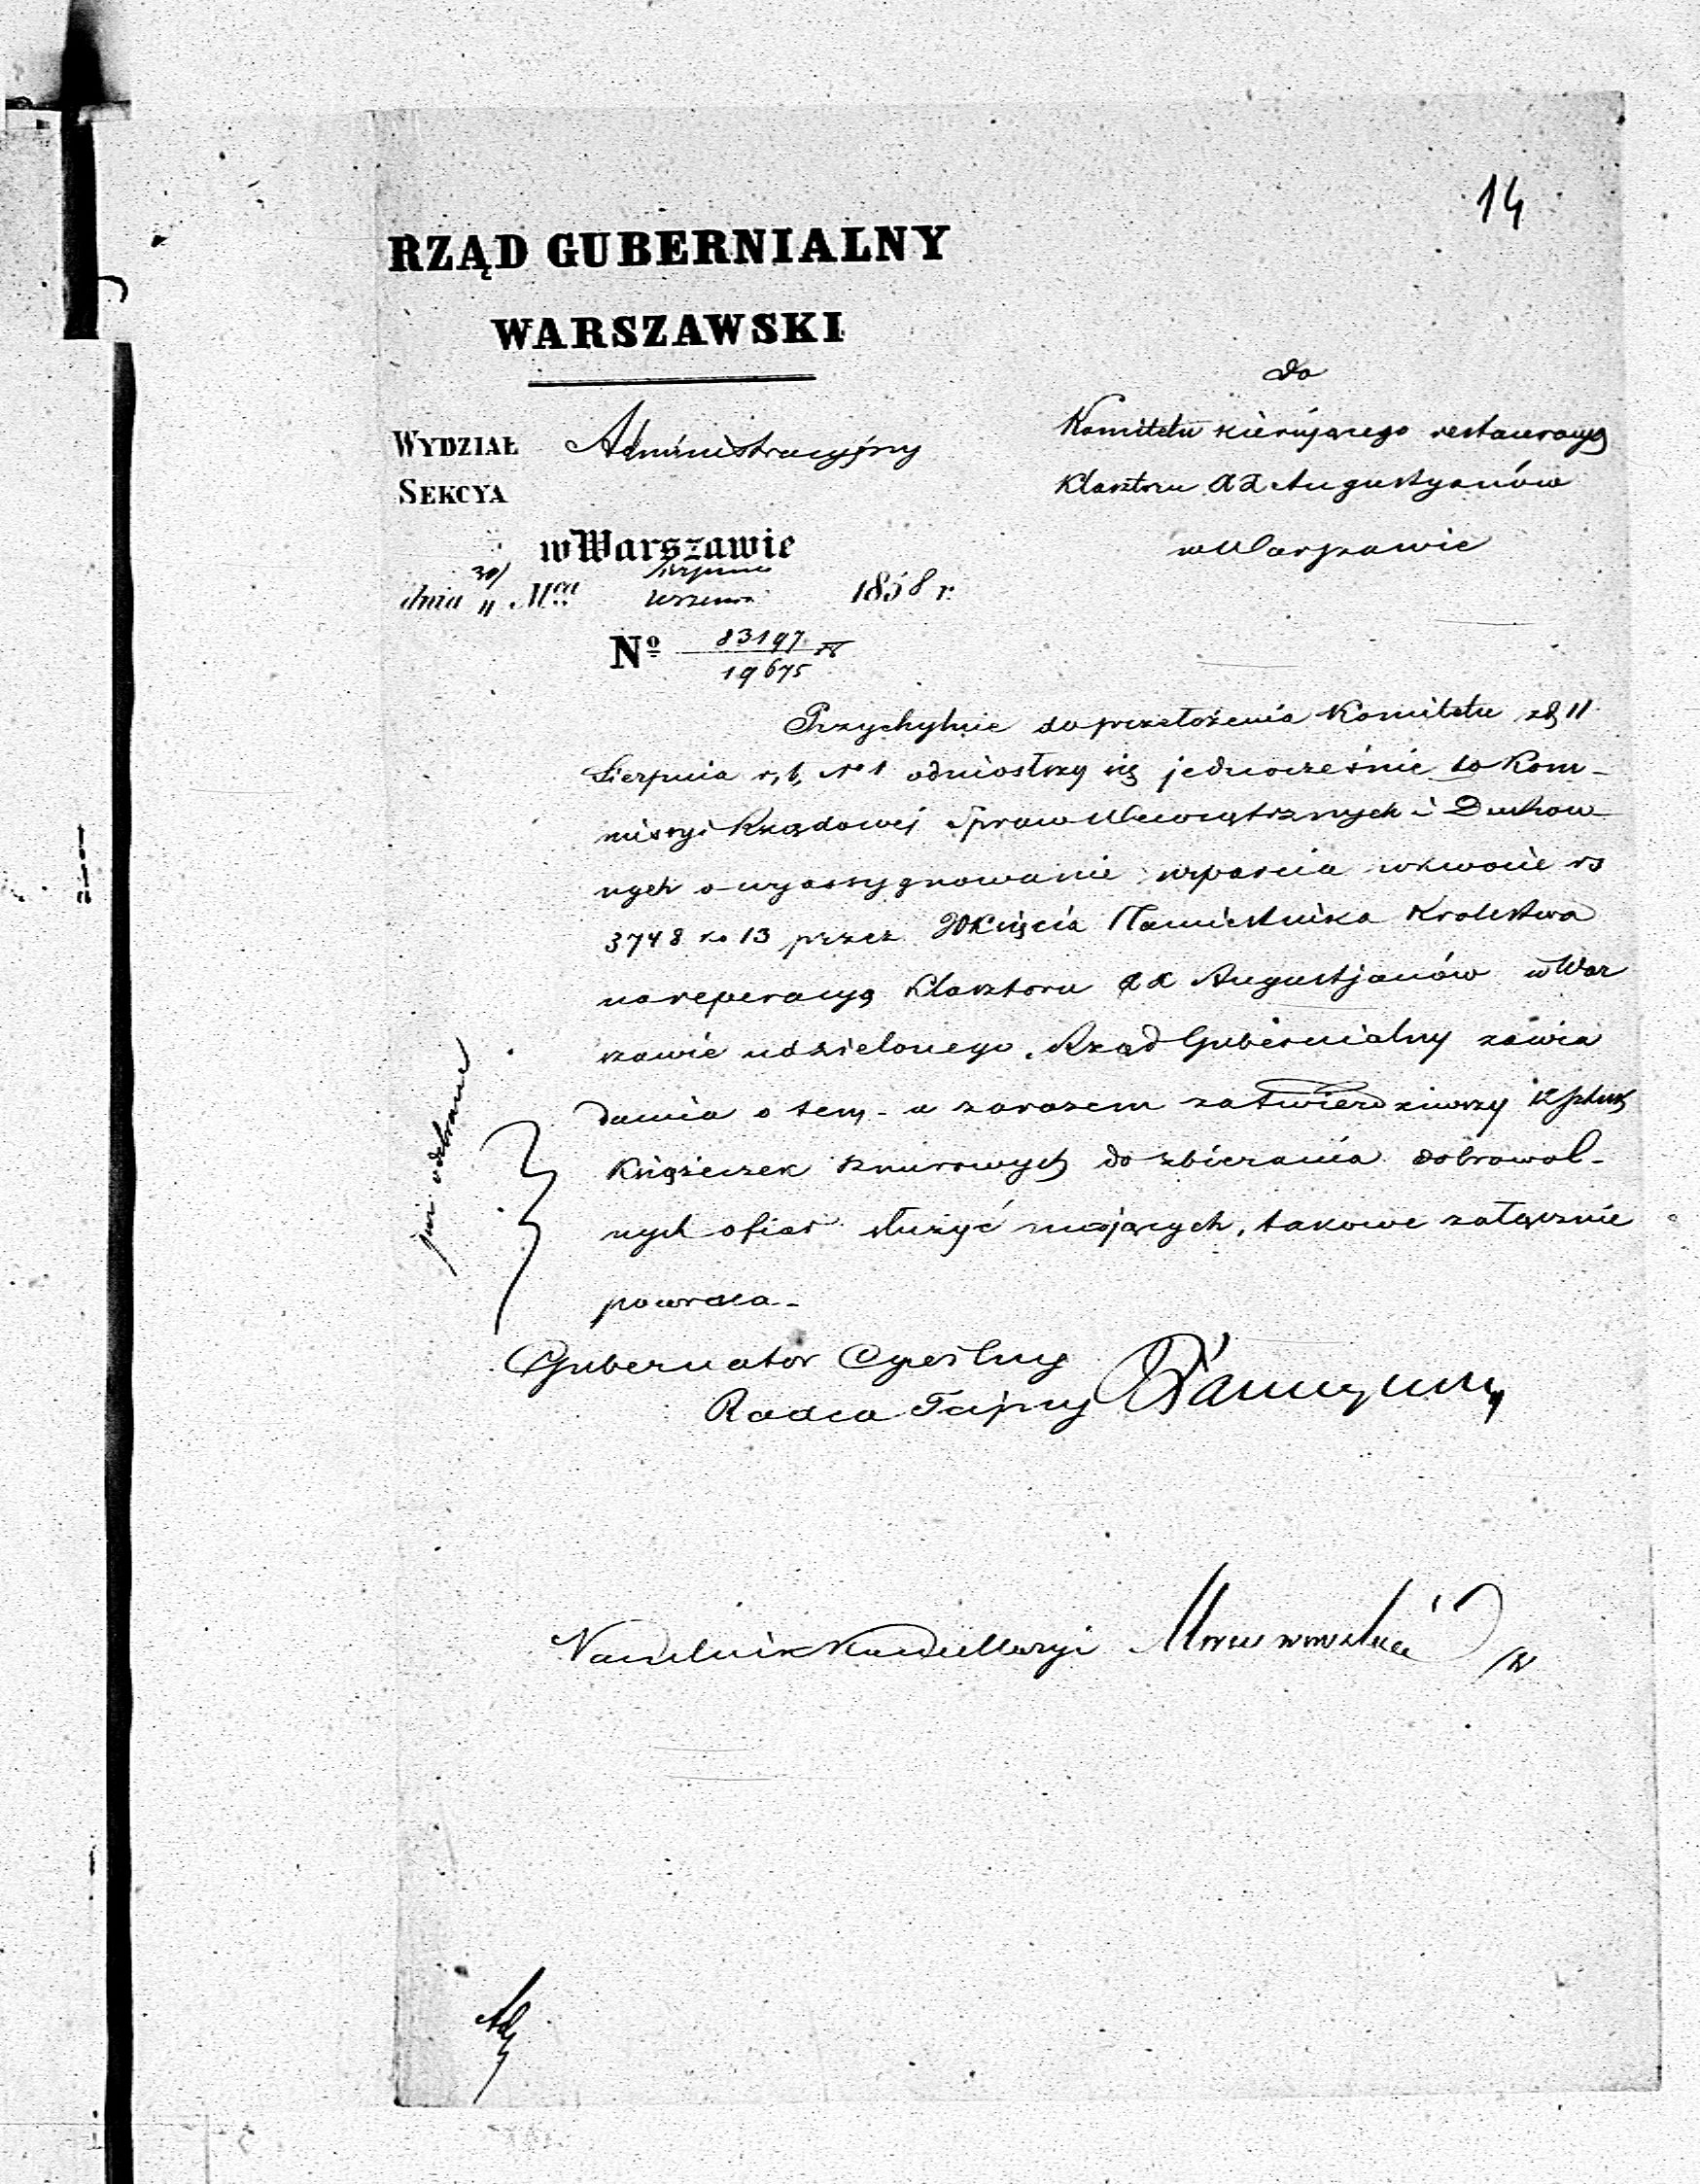 14
RZĄD GUBERNIALNY
WARSZAWSKI
WYDZIAŁ Administracyjny
SEKCYA
w Warszawie
dnia 30/11 Mca Sierpnia Września 1858 r.
No 83197
19675
do
Komitetu kierującego restauracyą
Klasztoru XX Augustyanów
w Warszawie
Przychylnie do przełożenia Komitetu z d 11
Sierpnia r, b, No 1 odniosłszy się jednocześnie do Kom-
missyi Rządowej Spraw Wewnętrznych i Duchow
nych o wyassygnowanie wsparcia w kwocie rs
3748 k. 13 przez JO Xięcia Namiestnika Królestwa
na reperacyą Klasztoru XX Augustjanów w War
szawie udzielonego, Rząd Gubernialny zawia
damia o tem - a zarazem zatwierdziwszy sztuk
Książeczek sznurowych do zbierania dobrowol-
nych ofiar służyć mających, takowe załącznie
powraca -
odebrane
Gubernator Cywilny
Radca Tajny
Naczelnik Kancellaryi